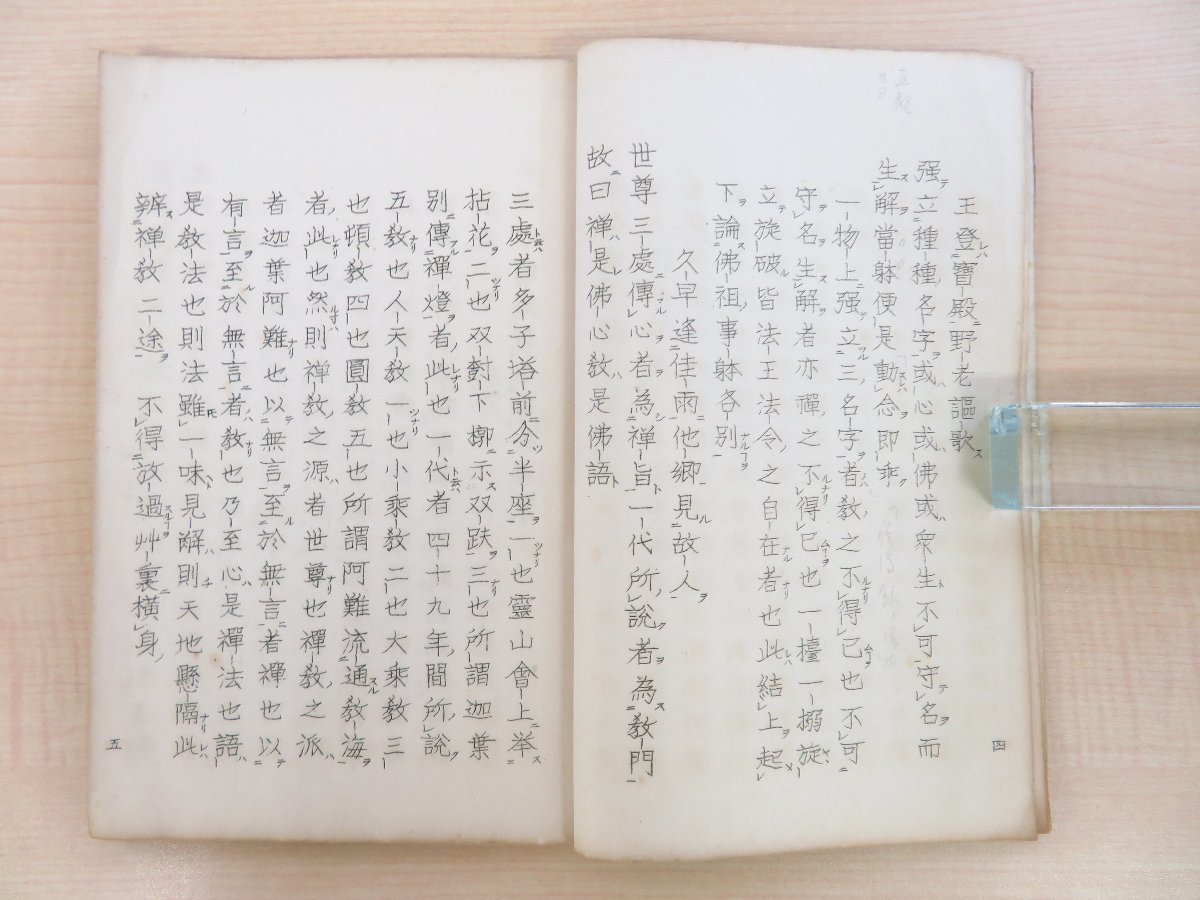 王登寶殿野老謳歌
强立種種名字或心或佛或衆生不可守名而
生解當躰便是動念即乖
一物上强立三名字者教之不得已也不可
守名生解者亦禪之不得已也一擡一搦旋
立旋破皆法王法令之自在者也此結上起
下論佛祖事躰各別
久旱逢佳雨他鄕見故人
世尊三處傳心者為禅旨一代所說者為教門
故曰禅是佛心教是佛語
四
三處者多子塔前分半座一也靈山會上举
拈花二也双樹下槨示双趺三也所謂迦葉
別傳禪燈者此也一代者四十九年間所說
五教也人天教一也小乘教二也大乘教三
也頓教四也圓教五也所謂阿難流通教海
者此也然則禅教之源者世尊也禪教之派
者迦葉阿難也以無言至於無言者禪也以
有言至於無言者教也乃至心是禪法也語
是教法也則法雖一味見解則天地懸隔此
辨禅教二途 不得放過艸裏橫身
五